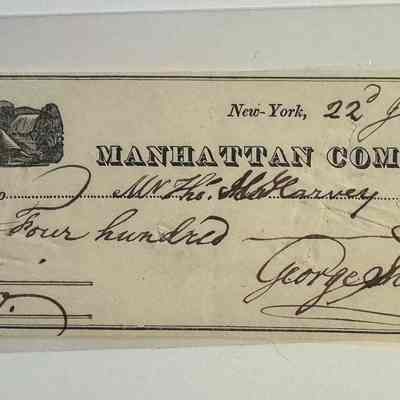 New-York, 22d
MANHATTAN COM
Mr Thos. Harvey
Four hundred
George